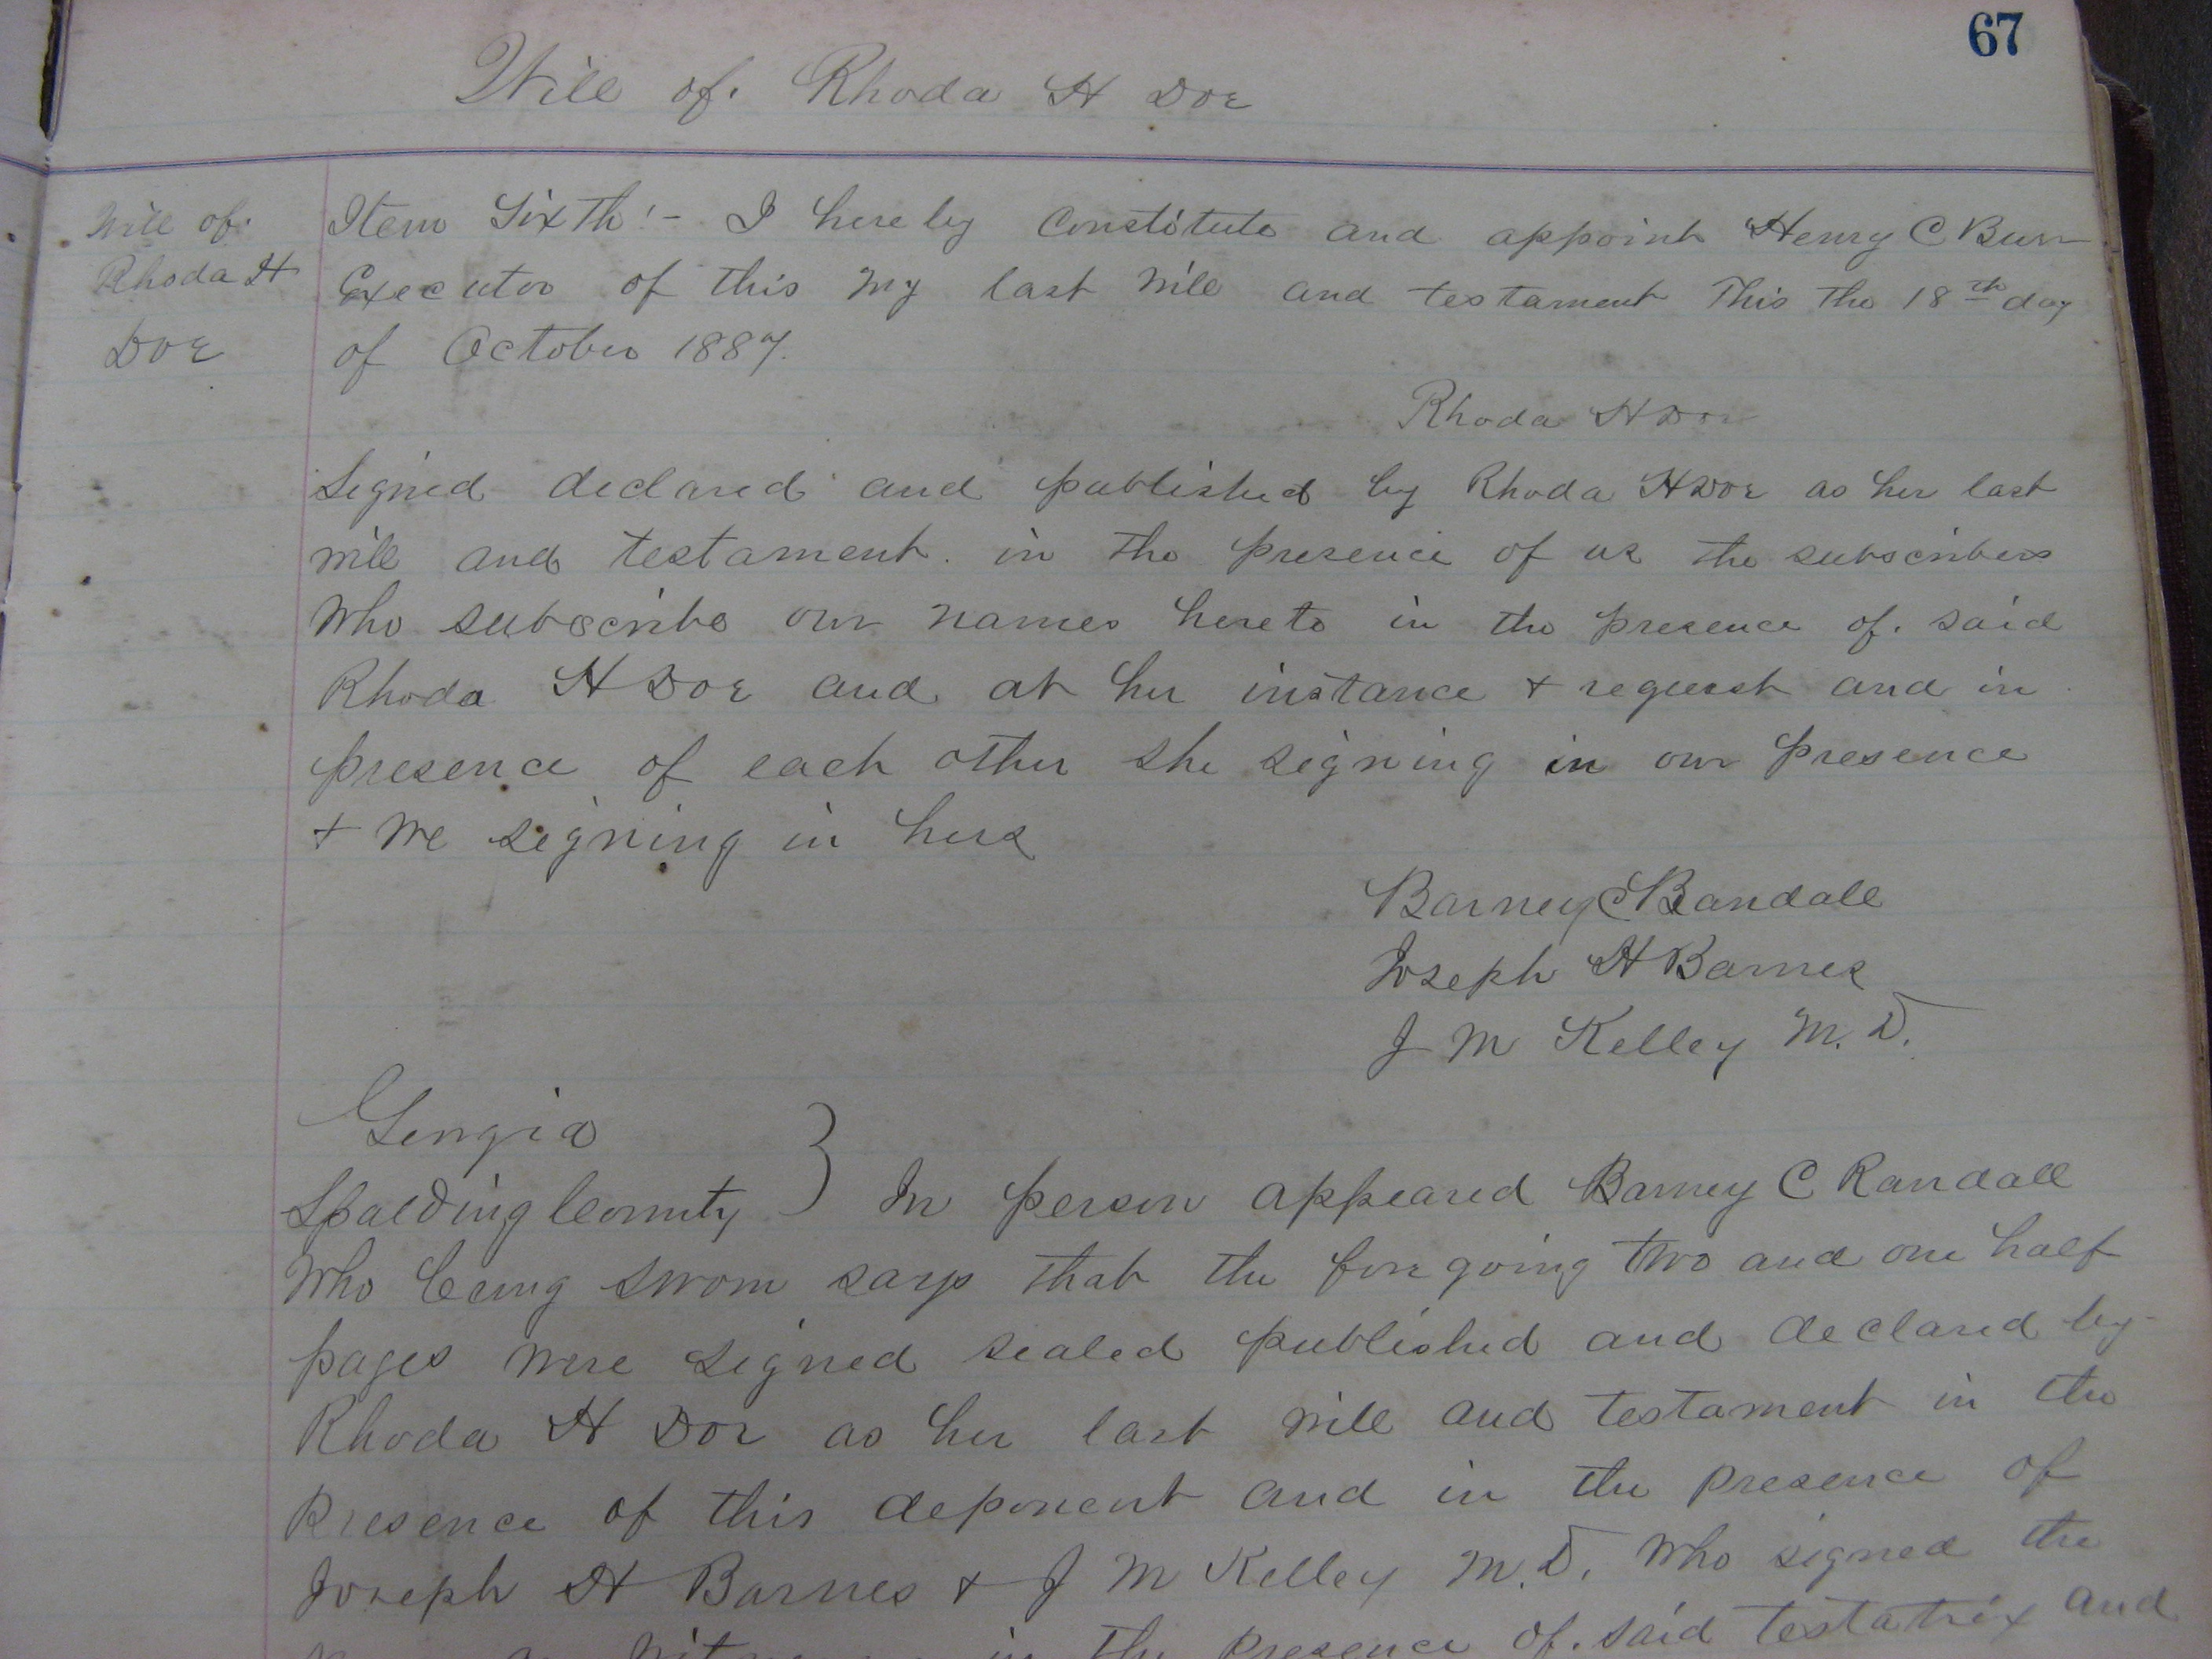 67
Will of. Rhoda H Doe
Will of.
Rhoda H
Doe
Item Sixth:- I hereby Constitute and appoint Henry C Burr
Executor of this my last will and testament This the 18th day
of October 1887.
Rhoda H Doe
Signed declared and published by Rhoda H Doe as her last
will and testament. in the presence of us the subscribers
who subscribe our names hereto in the presence of. said
Rhoda H Doe and at her instance + request and in
presence of each other she signing in our presence
+ we signing in hers
Barney C Randall
Joseph H Barnes
J M Kelley M.D.
Georgia
Spalding County } In person appeared Barney C Randall
who being sworn says that the foregoing two and one half
pages were signed sealed published and declared by
Rhoda H Doe as her last will and testament in the
presence of this deponent and in the presence of
Joseph H Barnes + J M Kelley M.D. who signed the
in the presence of. said testatrix and